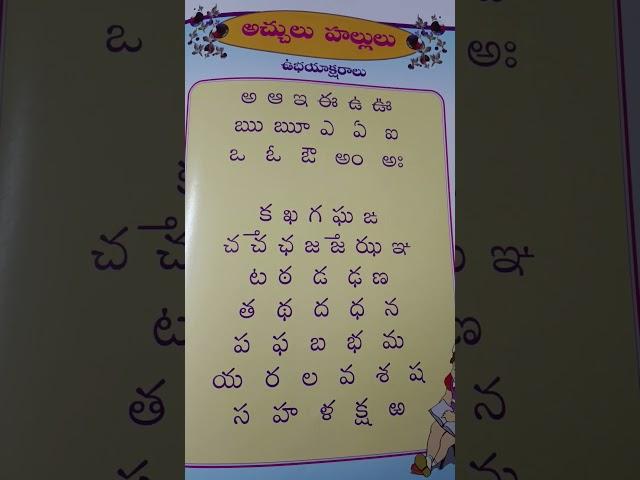 అచ్చులు హల్లులు
ఉభయాక్షరాలు
అ ఆ ఇ ఈ ఉ ఊ
ఋ ౠ ఎ ఏ ఐ
ఒ ఓ ఔ అం అః
క ఖ గ ఘ ఙ
చ ౘ ఛ జ ౙ ఝ ఞ
ట ఠ డ ఢ ణ
త థ ద ధ న
ప ఫ బ భ మ
య ర ల వ శ ష
స హ ళ క్ష ఱ